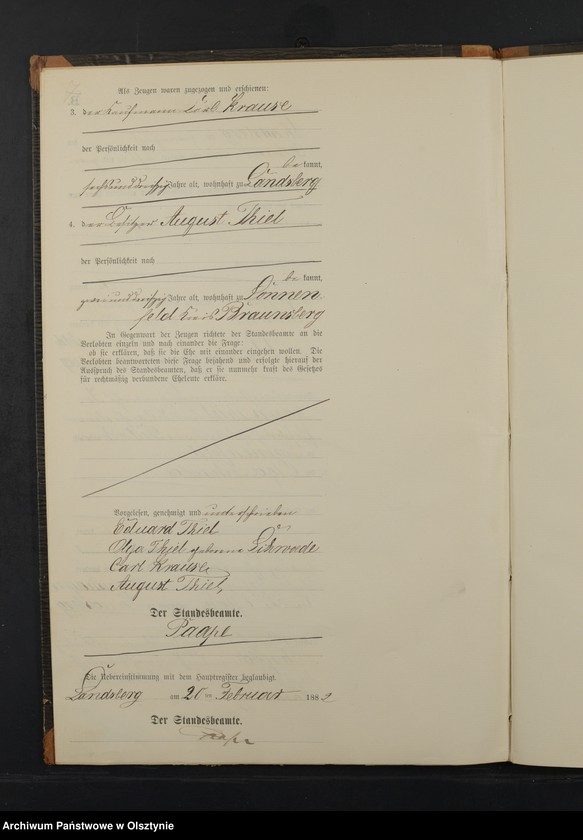 Als Zeugen waren zugezogen und erschienen:
3. der Kaufmann Carl Krause
der Persönlichkeit nach
be kannt,
sechsunddreißig Jahre alt, wohnhaft zu Landsberg
4. der Besitzer August Thiel
der Persönlichkeit nach
be kannt,
zweiunddreißig Jahre alt, wohnhaft zu Sonnen
feld Kreis Braunsberg
In Gegenwart der Zeugen richtete der Standesbeamte an die
Verlobten einzeln und nach einander die Frage:
ob sie erklären, daß sie die Ehe mit einander eingehen wollen. Die
Verlobten beantworteten diese Frage bejahend und erfolgte hierauf der
Ausspruch des Standesbeamten, daß er sie nunmehr kraft des Gesetzes
für rechtmäßig verbundene Eheleute erkläre.
Vorgelesen, genehmigt und unterschrieben
Eduard Thiel
Thiel geborene
Carl Krause
August Thiel
Der Standesbeamte.
Paape
Die Uebereinstimmung mit dem Hauptregister beglaubigt.
Landsberg am 20 ten Februar 188
Der Standesbeamte.
Paape
Archiwum Państwowe w Olsztynie